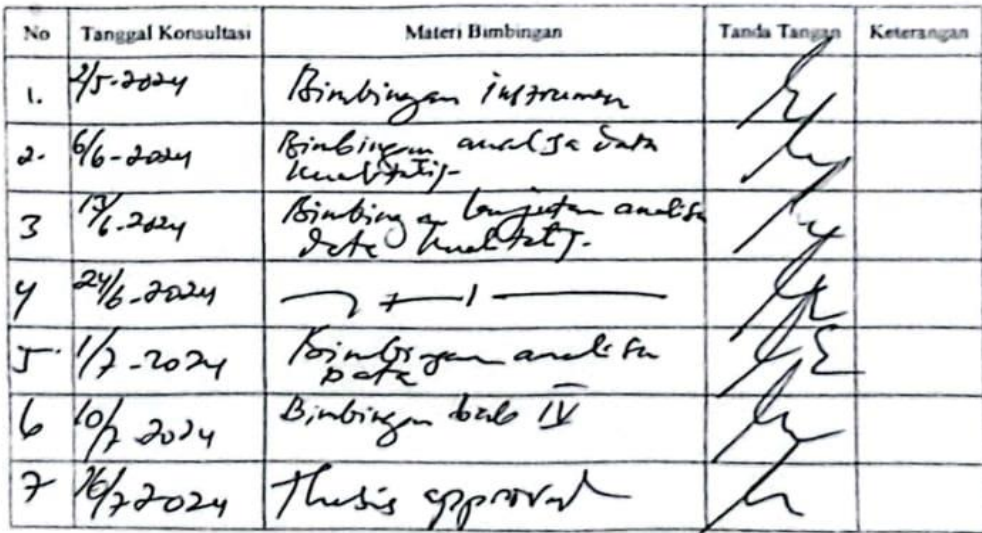 No Tanggal Konsultasi Materi Bimbingan Tanda Tangan Keterangan
1. 2/5-2024 Bimbingan instrumen
2. 6/6-2024 Bimbingan analisa data
kualitatif-
3 13/6-2024 Bimbingan lanjutan analisa
data kualitatif-
4 24/6-2024
5. 1/7-2024 Bimbingan analisa
Data
6 10/7 2024 Bimbingan bab IV
7 16/7 2024 Thesis approval